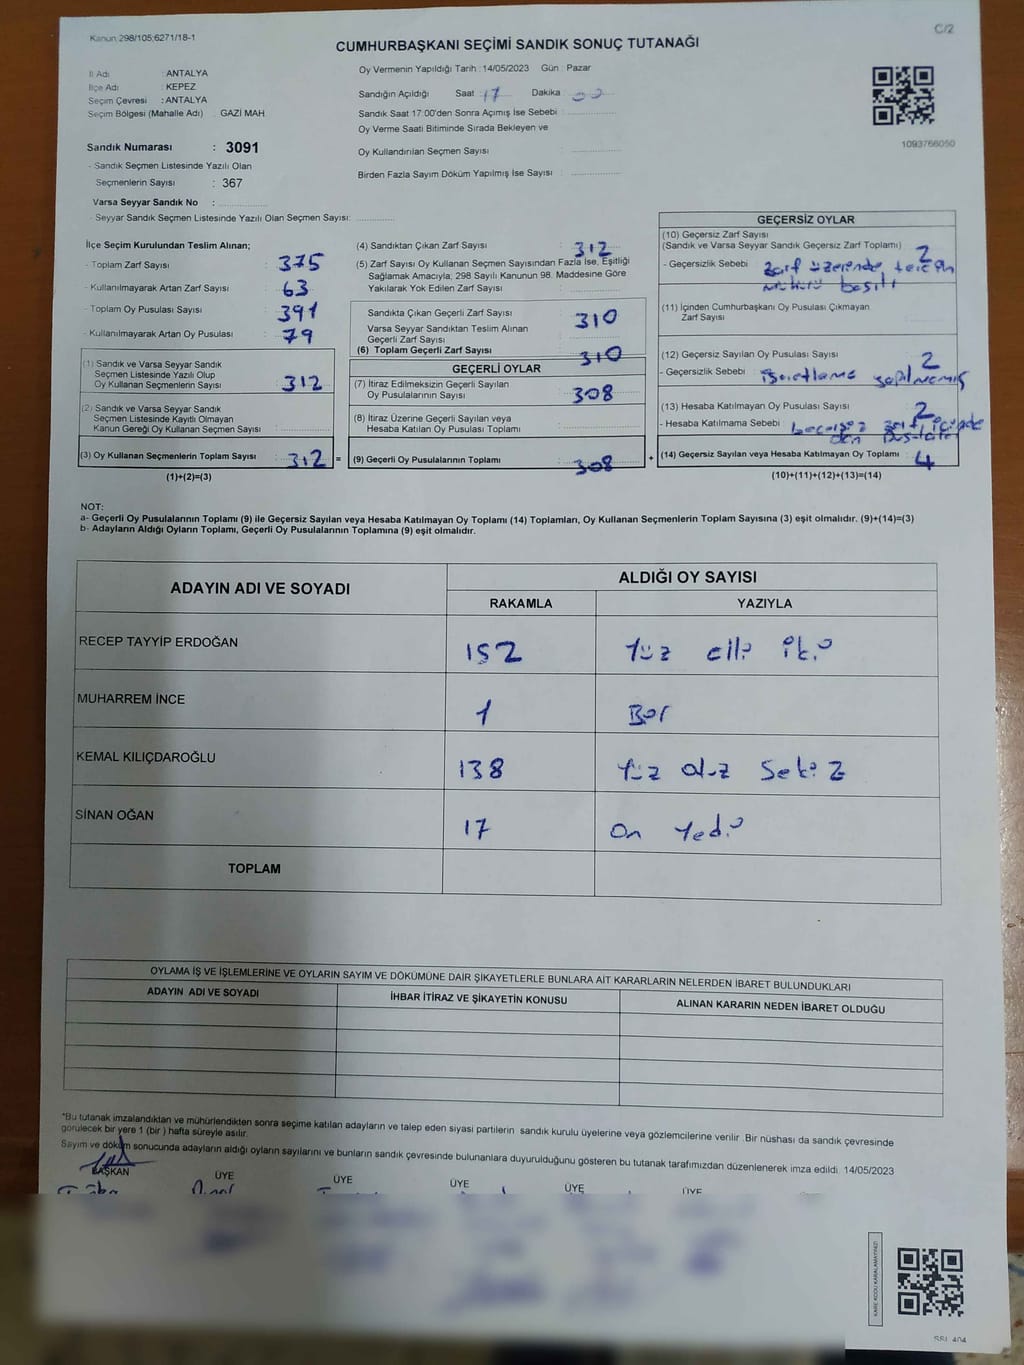 Kanun 298/105;6271/18-1
C/2
CUMHURBAŞKANI SEÇİMİ SANDIK SONUÇ TUTANAĞI
İl Adı : ANTALYA
İlçe Adı : KEPEZ
Seçim Çevresi : ANTALYA
Seçim Bölgesi (Mahalle Adı) GAZİ MAH
Sandık Numarası : 3091
- Sandık Seçmen Listesinde Yazılı Olan
Seçmenlerin Sayısı : 367
Varsa Seyyar Sandık No :
- Seyyar Sandık Seçmen Listesinde Yazılı Olan Seçmen Sayısı:
Oy Vermenin Yapıldığı Tarih :14/05/2023 Gün : Pazar
Sandığın Açıldığı Saat : 17 Dakika : 00
Sandık Saat 17:00'den Sonra Açımış İse Sebebi :
Oy Verme Saati Bitiminde Sırada Bekleyen ve
Oy Kullandırılan Seçmen Sayısı :
Birden Fazla Sayım Döküm Yapılmış İse Sayısı :
1093766050
İlçe Seçim Kurulundan Teslim Alınan;
- Toplam Zarf Sayısı : 375
- Kullanılmayarak Artan Zarf Sayısı : 63
- Toplam Oy Pusulası Sayısı : 391
- Kullanılmayarak Artan Oy Pusulası : 79
(1) Sandık ve Varsa Seyyar Sandık
Seçmen Listesinde Yazılı Olup
Oy Kullanan Seçmenlerin Sayısı : 312
(2) Sandık ve Varsa Seyyar Sandık
Seçmen Listesinde Kayıtlı Olmayan
Kanun Gereği Oy Kullanan Seçmen Sayısı :
(3) Oy Kullanan Seçmenlerin Toplam Sayısı : 312 =
(1)+(2)=(3)
(4) Sandıktan Çıkan Zarf Sayısı : 312
(5) Zarf Sayısı Oy Kullanan Seçmen Sayısından Fazla İse, Eşitliği
Sağlamak Amacıyla; 298 Sayılı Kanunun 98. Maddesine Göre
Yakılarak Yok Edilen Zarf Sayısı :
Sandıkta Çıkan Geçerli Zarf Sayısı : 310
Varsa Seyyar Sandıktan Teslim Alınan
Geçerli Zarf Sayısı :
(6) Toplam Geçerli Zarf Sayısı : 310
GEÇERLİ OYLAR
(7) İtiraz Edilmeksizin Geçerli Sayılan
Oy Pusulalarının Sayısı : 308
(8) İtiraz Üzerine Geçerli Sayılan veya
Hesaba Katılan Oy Pusulası Toplamı :
(9) Geçerli Oy Pusulalarının Toplamı : 308 +
GEÇERSİZ OYLAR
(10) Geçersiz Zarf Sayısı
(Sandık ve Varsa Seyyar Sandık Geçersiz Zarf Toplamı) : 2
- Geçersizlik Sebebi : Zarf üzerinde tercih
mührü basılı
(11) İçinden Cumhurbaşkanı Oy Pusulası Çıkmayan
Zarf Sayısı :
(12) Geçersiz Sayılan Oy Pusulası Sayısı : 2
- Geçersizlik Sebebi : işaretleme yapılmamış
(13) Hesaba Katılmayan Oy Pusulası Sayısı : 2
- Hesaba Katılmama Sebebi : Geçersiz zarf içinde
(14) Geçersiz Sayılan veya Hesaba Katılmayan Oy Toplamı : 4
(10)+(11)+(12)+(13)=(14)
NOT:
a- Geçerli Oy Pusulalarının Toplamı (9) ile Geçersiz Sayılan veya Hesaba Katılmayan Oy Toplamı (14) Toplamları, Oy Kullanan Seçmenlerin Toplam Sayısına (3) eşit olmalıdır. (9)+(14)=(3)
b- Adayların Aldığı Oyların Toplamı, Geçerli Oy Pusulalarının Toplamına (9) eşit olmalıdır.
ADAYIN ADI VE SOYADI
ALDIĞI OY SAYISI
RAKAMLA YAZIYLA
RECEP TAYYİP ERDOĞAN 152 Yüz elli iki
MUHARREM İNCE 1 Bir
KEMAL KILIÇDAROĞLU 138 Yüz otuz Sekiz
SİNAN OĞAN 17 On Yedi
TOPLAM
OYLAMA İŞ VE İŞLEMLERİNE VE OYLARIN SAYIM VE DÖKÜMÜNE DAİR ŞİKAYETLERLE BUNLARA AİT KARARLARIN NELERDEN İBARET BULUNDUKLARI
ADAYIN ADI VE SOYADI İHBAR İTİRAZ VE ŞİKAYETİN KONUSU ALINAN KARARIN NEDEN İBARET OLDUĞU
*Bu tutanak imzalandıktan ve mühürlendikten sonra seçime katılan adayların ve talep eden siyasi partilerin sandık kurulu üyelerine veya gözlemcilerine verilir .Bir nüshası da sandık çevresinde
görülecek bir yere 1 (bir ) hafta süreyle asılır.
Sayım ve döküm sonucunda adayların aldığı oyların sayılarını ve bunların sandık çevresinde bulunanlara duyurulduğunu gösteren bu tutanak tarafımızdan düzenlenerek imza edildi. 14/05/2023
BAŞKAN ÜYE ÜYE ÜYE ÜYE ÜYE
KARE KODU KARALAMAYINIZ!